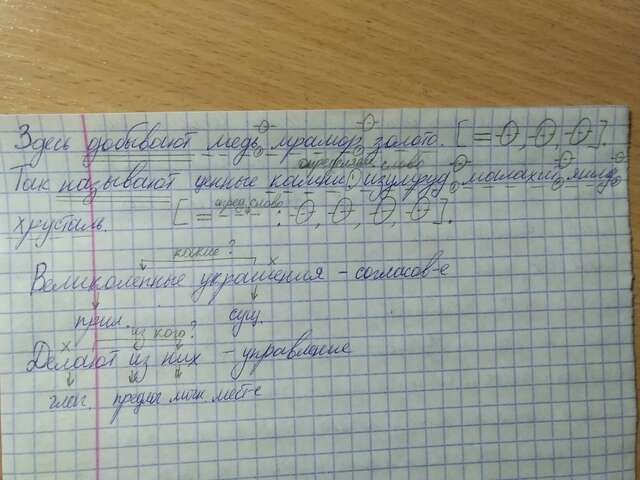 Здесь добывают медь, мрамор, золото. [=О, О, О].
слово
Так называют ценные камни: изумруд, малахит,
хрусталь. [= : О, О, О, О].
какие?
Великолепные украшения – согласов-е
прил. сущ.
из кого?
Делают из них – управление
глаг. предлог личн. мест-е